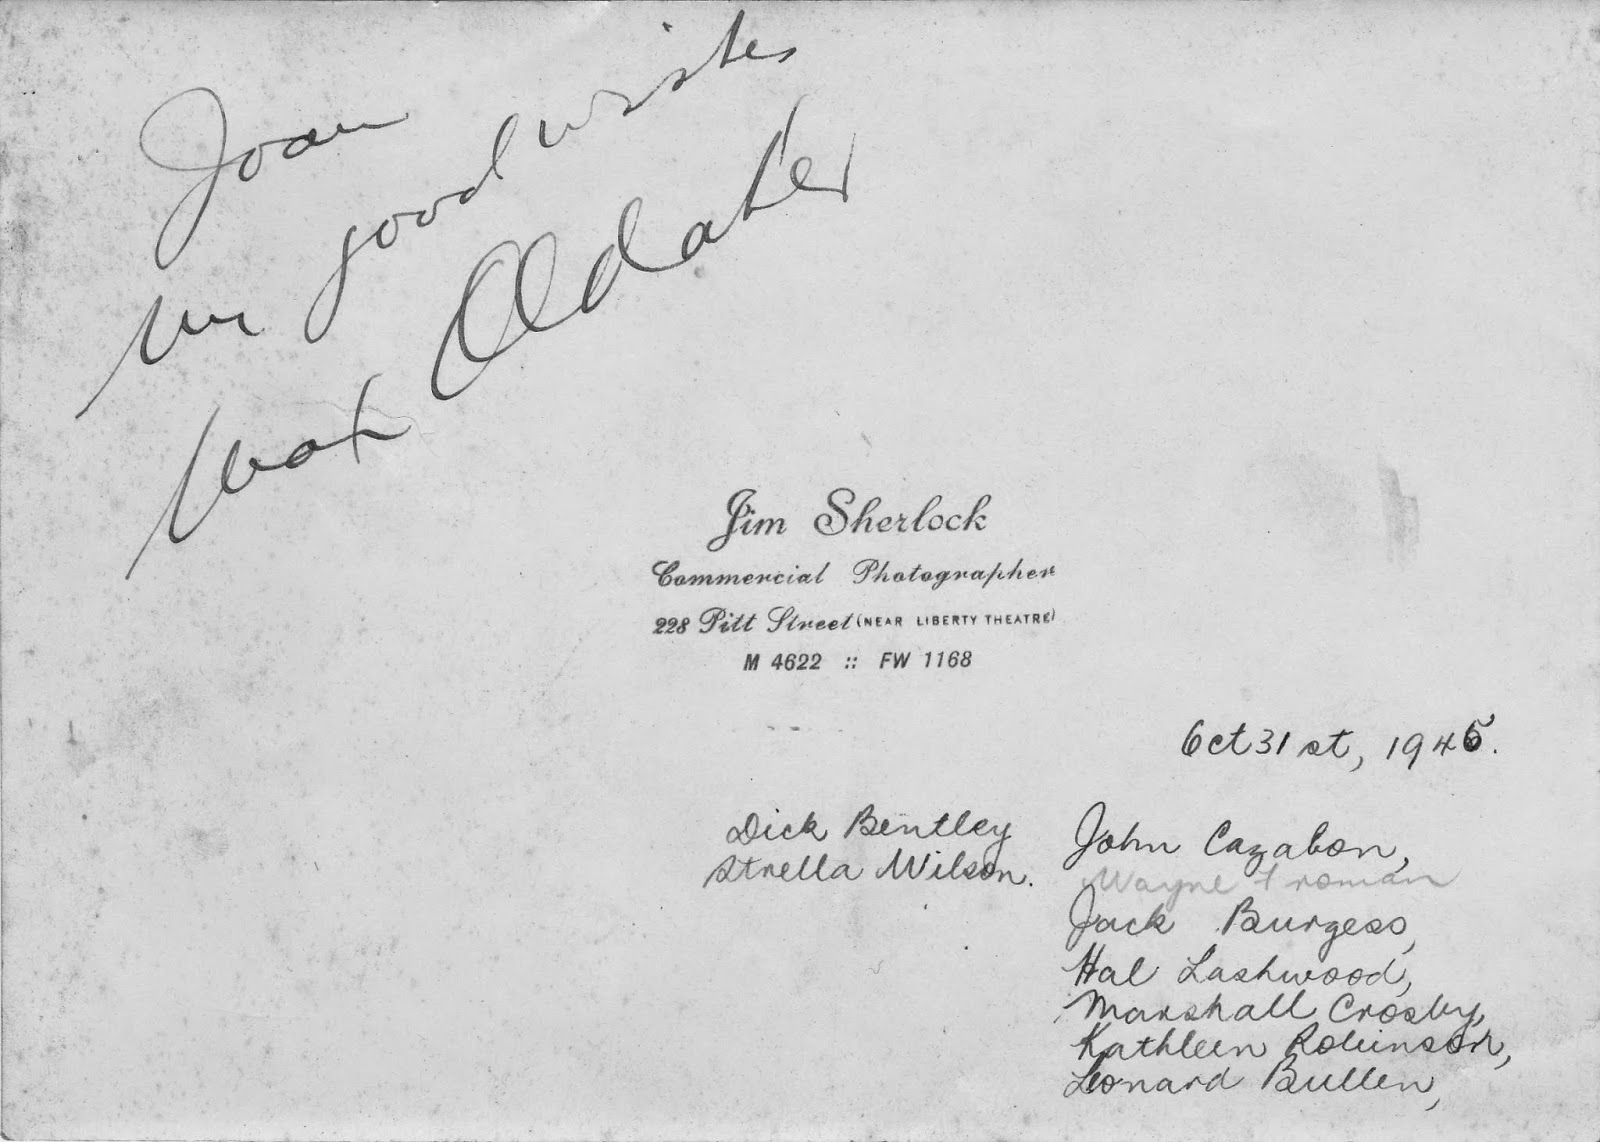 Joan
my good wishes
Max Oldaker
Jim Sherlock
Commercial Photographer
228 Pitt Street (NEAR LIBERTY THEATRE)
M 4622 :: FW 1168
Oct 31st, 1945.
Dick Bentley
Strella Wilson.
John Cazabon,
Wayne Froman
Jack Burgess,
Hal Lashwood,
Marshall Crosby,
Kathleen Robinson,
Leonard Bullen,